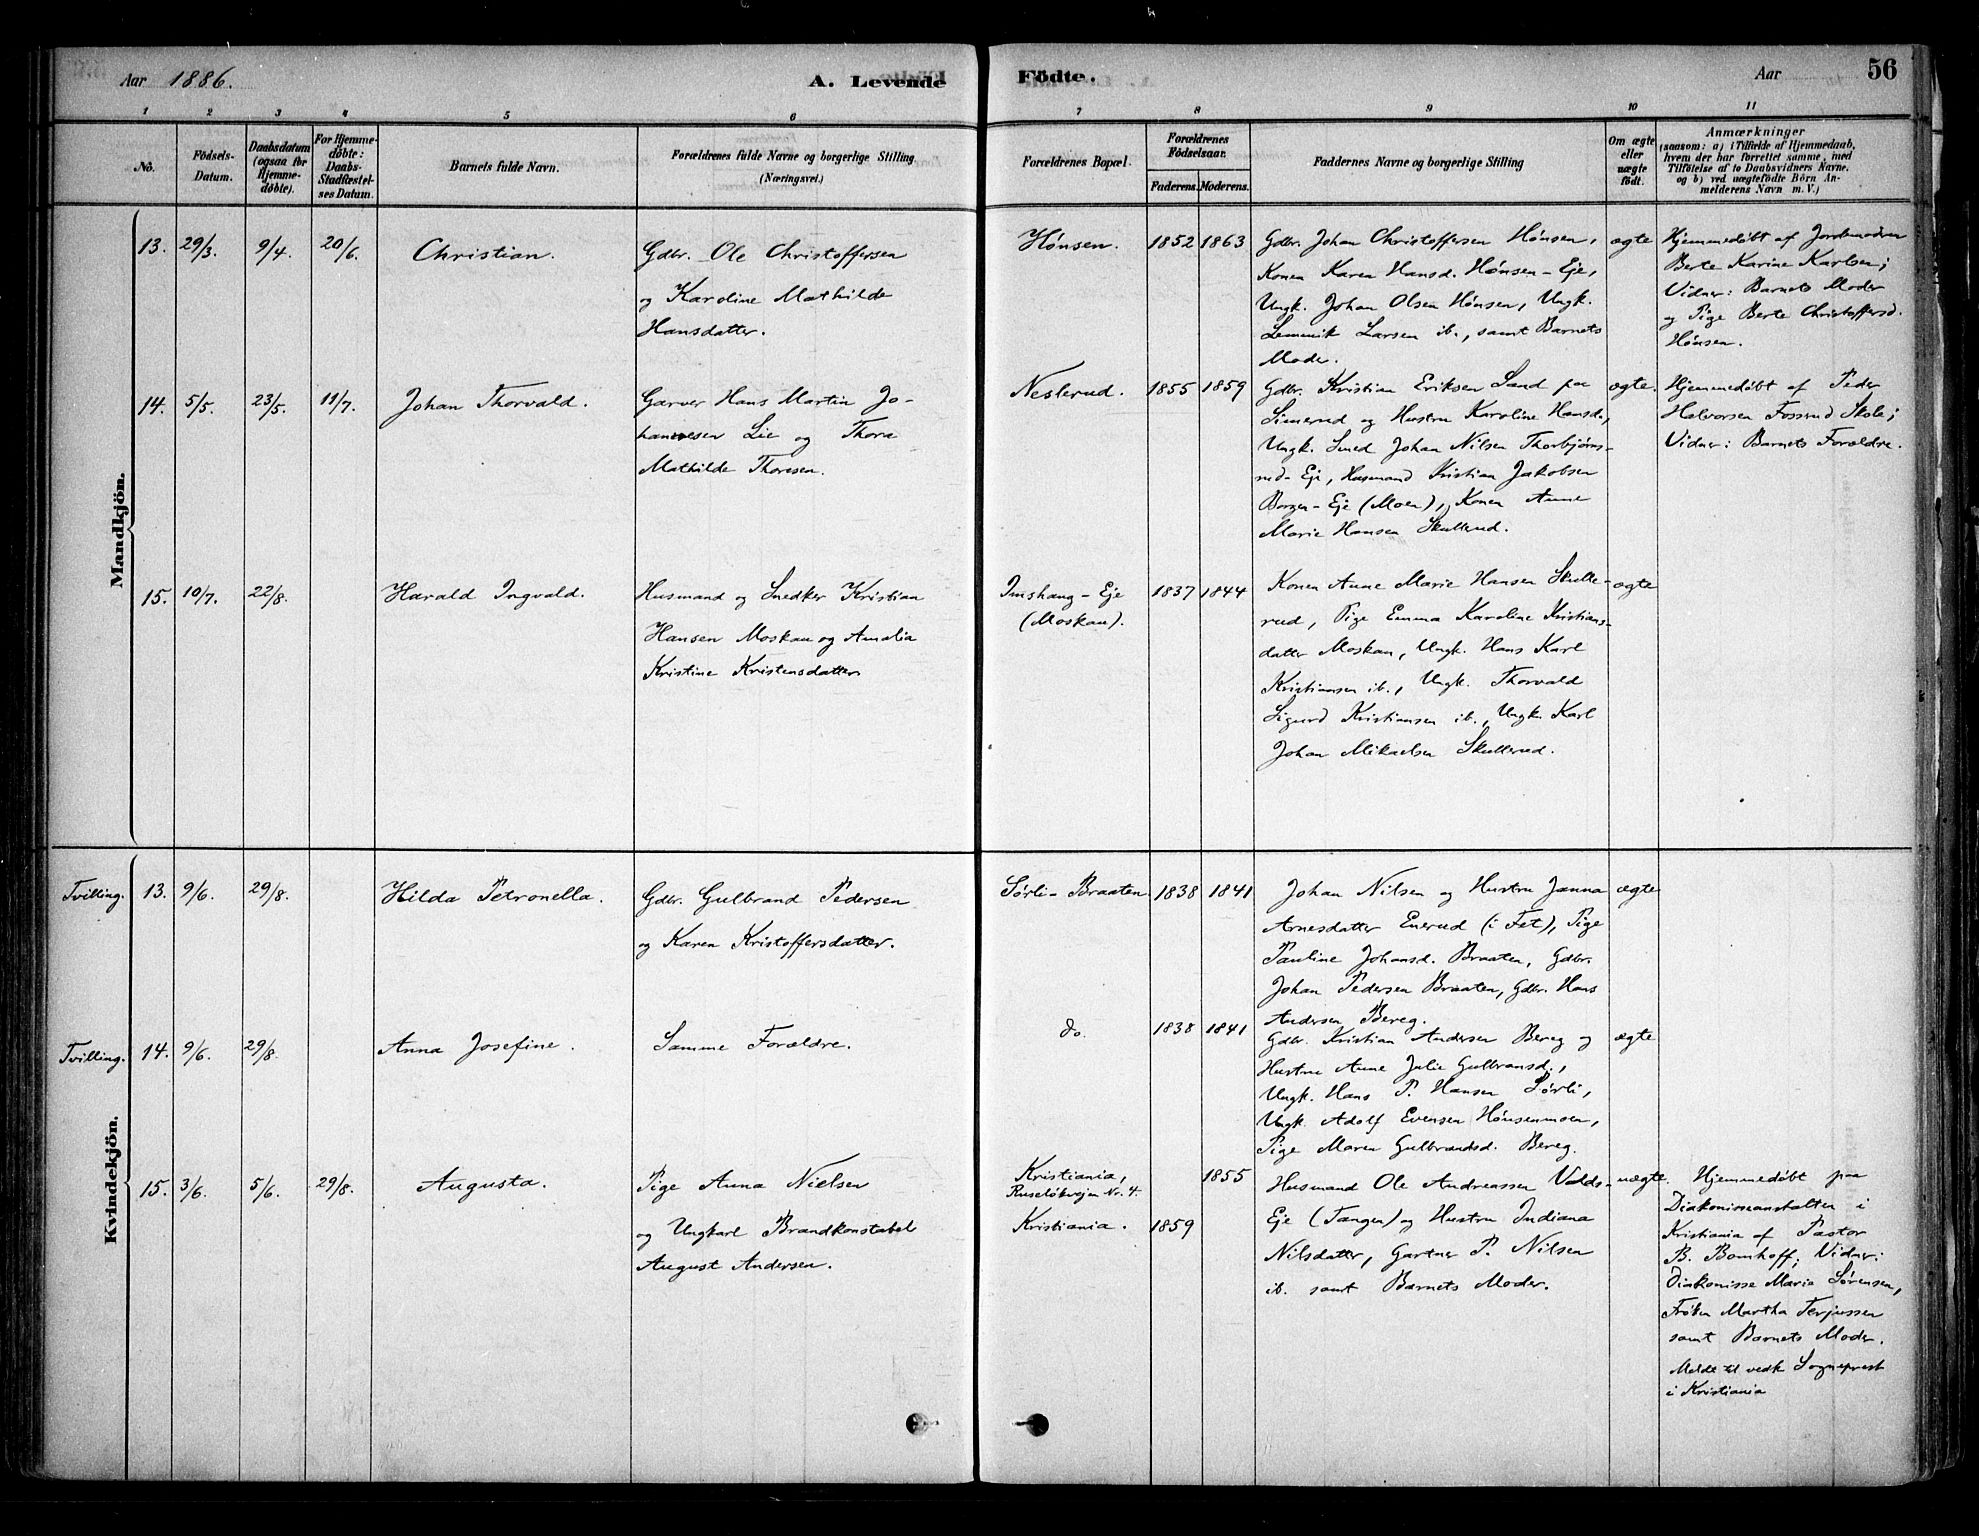 Aar 1886. A. Levende
Födte. Aar 56
1 2 3 4 5 6 7 8 9 10 11
No.
Födsels-
Datum.
Daabsdatum
(ogsaa for
Hjemme-
döbte).
For Hjemme-
döbte:
Daabs-
Stadfæstel-
ses Datum.
Barnets fulde Navn.
Forældrenes fulde Navne og borgerlige Stilling
(Næringsvei.)
Forældrenes Bopæl.
Forældrenes
Födselsaar.
Faderens. Moderens.
Faddernes Navne og borgerlige Stilling
Om ægte
eller
uægte
födt.
Anmærkninger
(saasom: a) i Tilfælde af Hjemmedaab,
hvem der har forrettet samme, med
Tilföielse af to Daabsvidners Navne.
og b) ved uægtefödte Börn An-
melderens Navn m. V.)
Mandkjön.
13. 29/3. 9/4. 20/6. Christian.
Gdbr. Ole Christoffersen
og Karoline Mathilde
Hansdatter.
Hønsen. 1852 1863
Gdbr. Johan Christoffersen Hønsen,
Konen Karen Hansd. Hønsen-Eje,
Ungk. Johan Olsen Hønsen, Ungk.
Lemmik Larsen ib., samt Barnets
Moder.
ægte
Hjemmedøbt af Jordemoderen
Berte Karine Karlsen;
Vidner: Barnets Moder
og Pige Berte Christoffersd.
Hønsen.
14. 5/5. 23/5. 11/7. Johan Thorvald.
Garver Hans Martin Jo-
hannesen Lie og Thora
Mathilde Thoresen.
Neslerud. 1855 1859
Gdbr. Kristian Eriksen Sand paa
Simerud og Hustru Karoline Hansd.,
Ungk. Smed Johan Nilsen Thorbjørns-
rud-Eje, Husmand Kristian Jakobsen
Borgen-Eje (Moen), Konen Anne
Marie Hansen Skullerud.
ægte.
Hjemmedøbt af Peder
Halvorsen Fossrud Skole;
Vidner: Barnets Forældre.
15. 10/7. 22/8. Harald Ingvald.
Husmand og Snedker Kristian
Hansen Moskau og Amalia
Kristine Kristensdatter
Imshaug-Eje
(Moskau).
1837 1844
Konen Anne Marie Hansen Skulle-
rud, Pige Emma Karoline Kristians-
datter Moskau, Ungk. Hans Karl
Kristiansen ib., Ungk. Thorvald
Sigurd Kristiansen ib., Ungk. Karl
Johan Mikaelsen Skullerud.
ægte
Kvindekjön.
Tvilling. 13. 9/6. 29/8. Hilda Petronella.
Gdbr. Gulbrand Pedersen
og Karen Kristoffersdatter.
Sørli-Braaten 1838 1841
Johan Nilsen og Hustru Janna
Arnesdatter Enerud (i Fet), Pige
Pauline Johansd. Braaten, Gdbr.
Johan Pedersen Braaten, Gdbr. Hans
Andersen Bereg.
ægte
Tvilling. 14. 9/6. 29/8. Anna Josefine.
Samme Forældre.
do. 1838 1841
Gdbr. Kristian Andersen Bereg og
Hustru Anne Julie Gulbransd.,
Ungk. Hans P. Hansen Sørli,
Ungk. Adolf Evensen Hønsenmoen,
Pige Maren Gulbrandsd. Bereg.
ægte
15. 3/6. 5/6. 29/8. Augusta.
Pige Anna Nielsen
og Ungkarl Brandkonstabel
August Andersen.
Kristiania,
Ruseløkvejen No. 4.
Kristiania.
1859 1855
Husmand Ole Andreassen Volds-
Eje (Tangen) og Hustru Indiana
Nilsdatter, Gartner P. Nilsen
ib. samt Barnets Moder.
uægte.
Hjemmedøbt paa
Diakonisseanstalten i
Kristiania af Pastor
B. Bomhoff; Vidner:
Diakonisse Maria Sørensen,
Frøken Martha Terjussen
samt Barnets Moder.
Meldt til vedk Sogneprest
i Kristiania